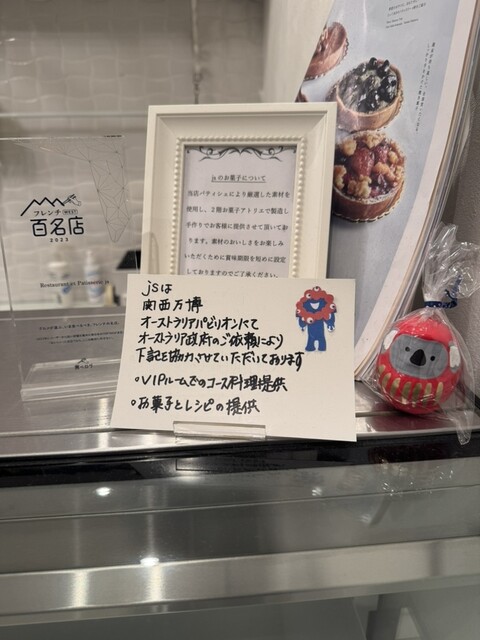 フレンチ WEST
百名店
2023
Restaurant et Patisserie js
食べログ
jsのお菓子について
当店パティシエにより厳選した素材を
使用し、2階お菓子アトリエで製造し
手作りでお客様に提供させて頂いてお
ります。素材のおいしさをお楽しみ
いただくために賞味期限を短めに設定
しておりますのでご了承ください。
jsは
関西万博
オーストラリアパビリオンにて
オーストラリア政府のご依頼により
下記を協力させていただいております
・VIPルームでのコース料理提供
・お菓子とレシピの提供